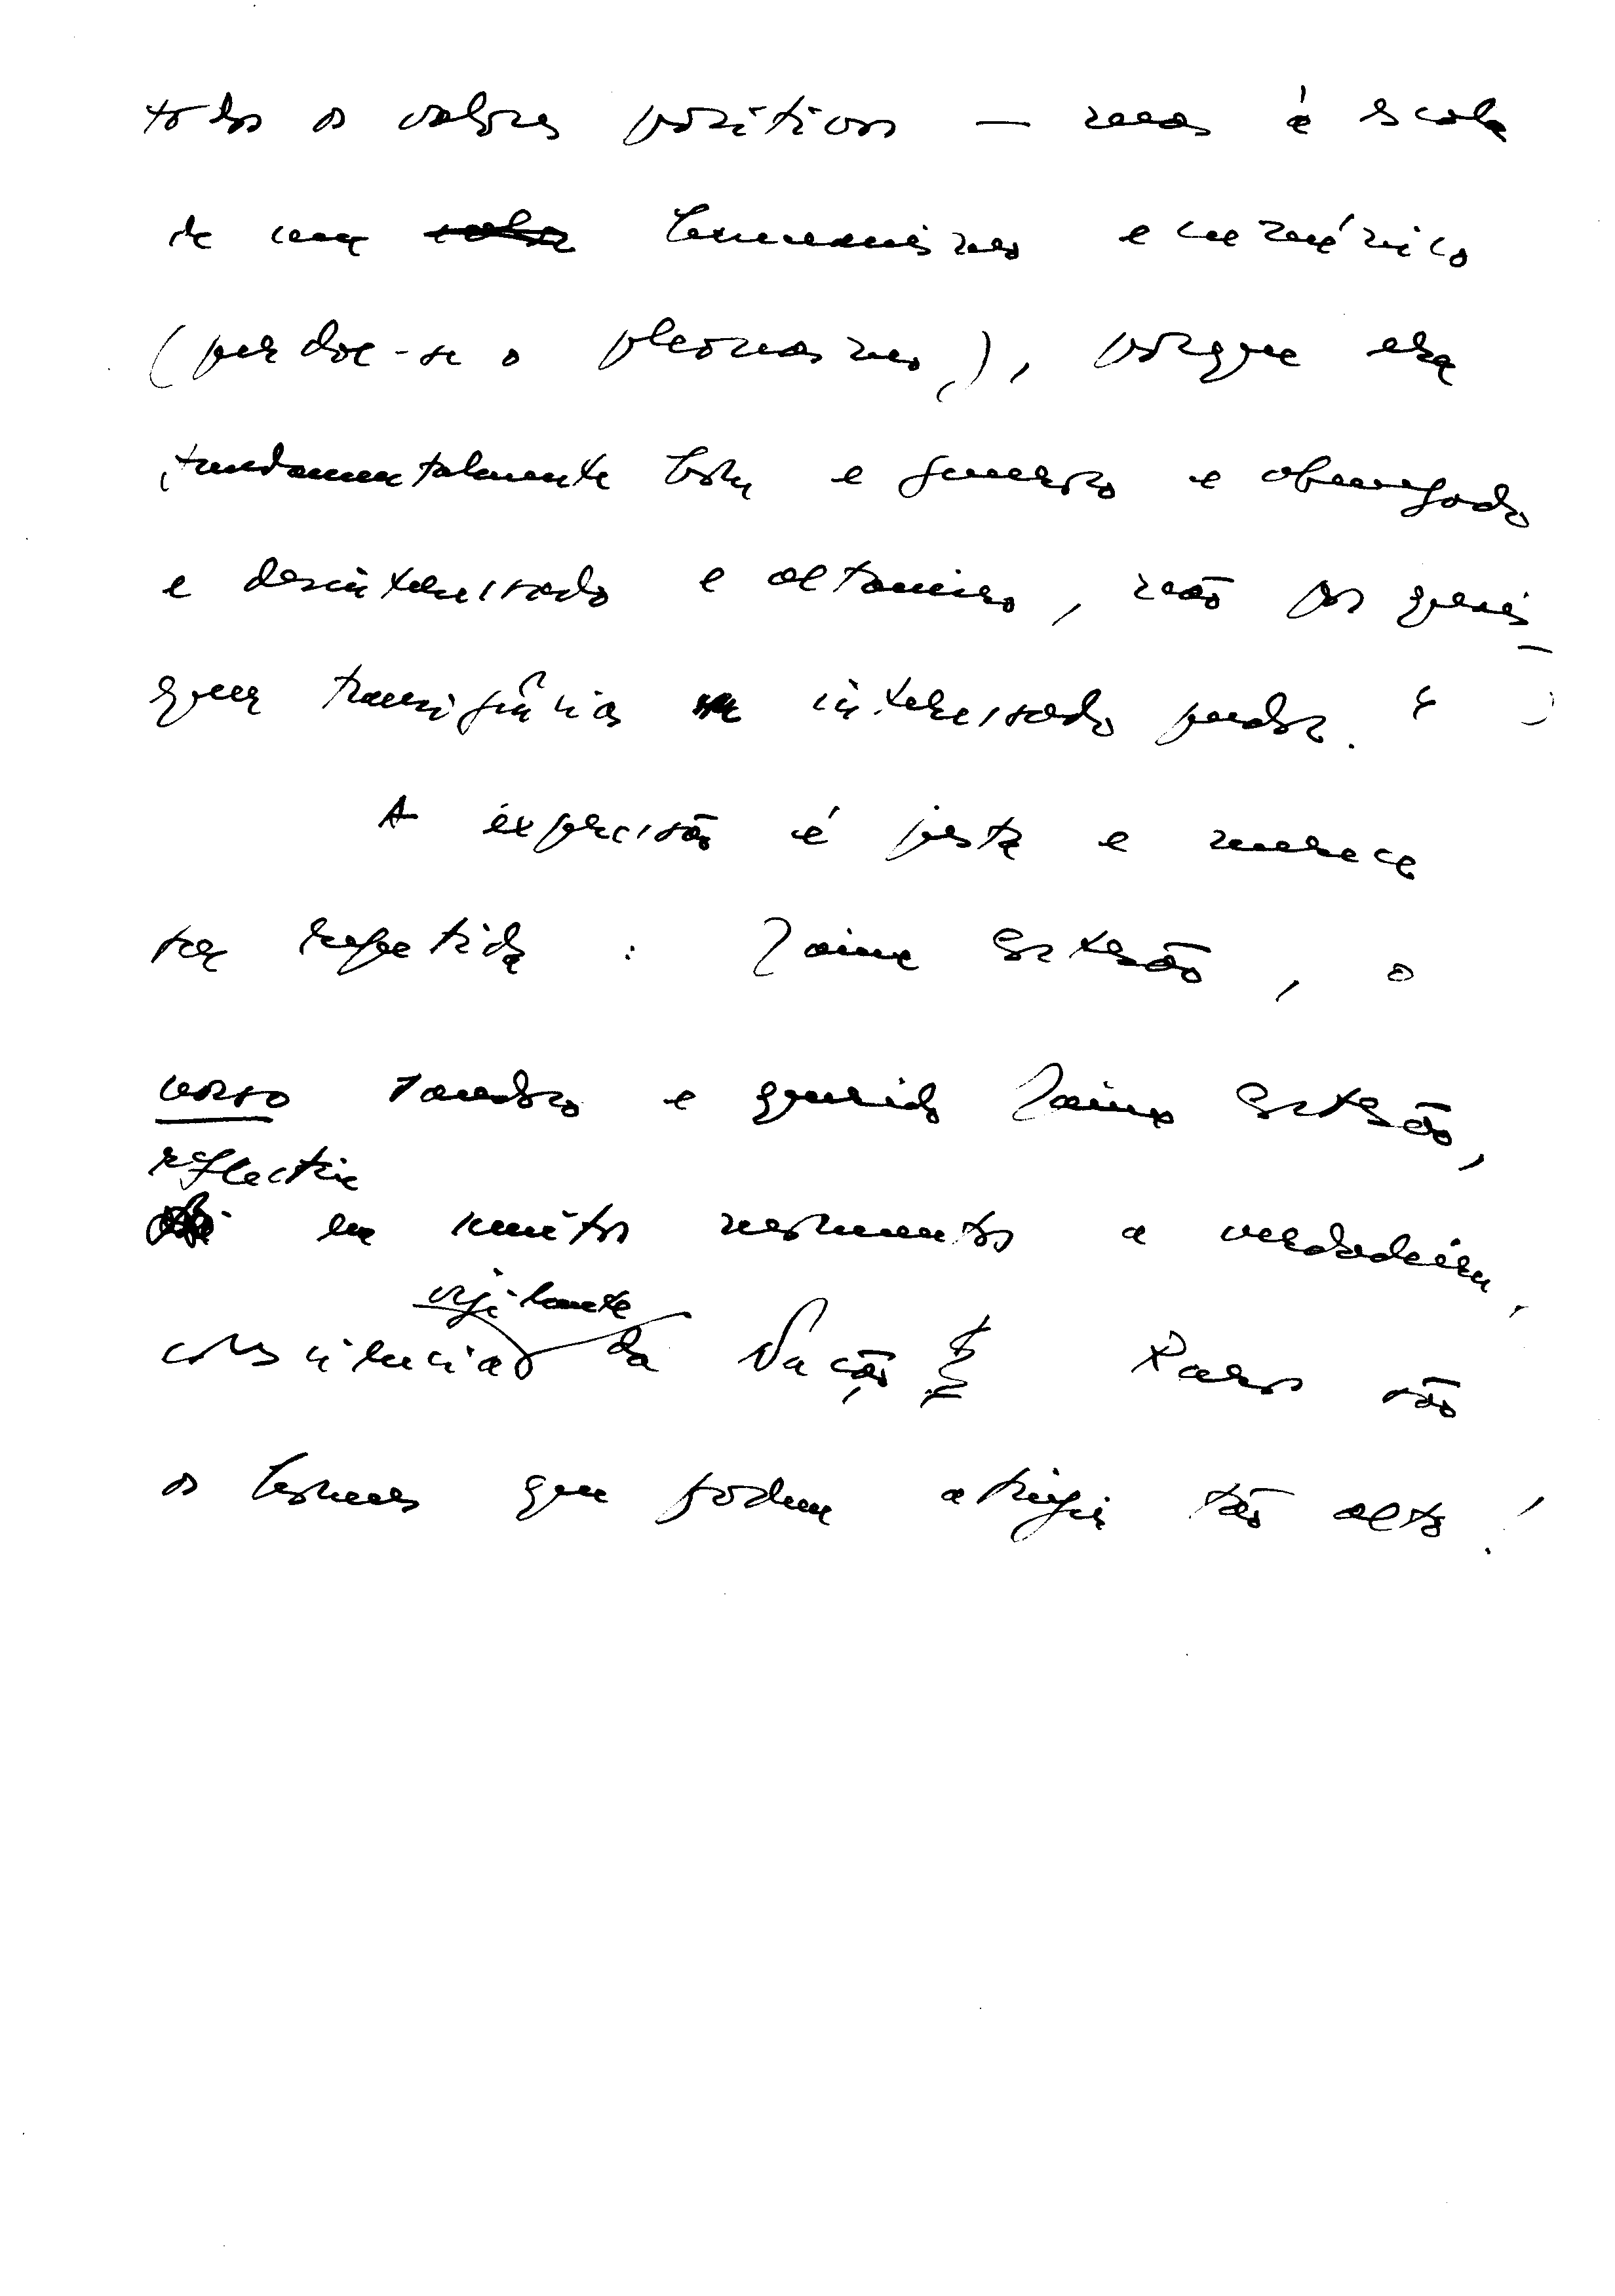 todos os valores positivos — mas à escala
de um humanismo ecuménico
(perdoe-se o pleonasmo), porque era
fundamentalmente bom e generoso e abnegado
e desinteressado e altaneiro, não por qual-
quer transigência interessado pendor."
A expressão é justa e merece
ser repetida: Jaime Cortesão, o
nosso saudoso e querido Jaime Cortesão,
reflectiu
em muitos momentos a verdadeira,
vigilante
consciência da Nação. Raros são
os homens que podem atingir tão alto!